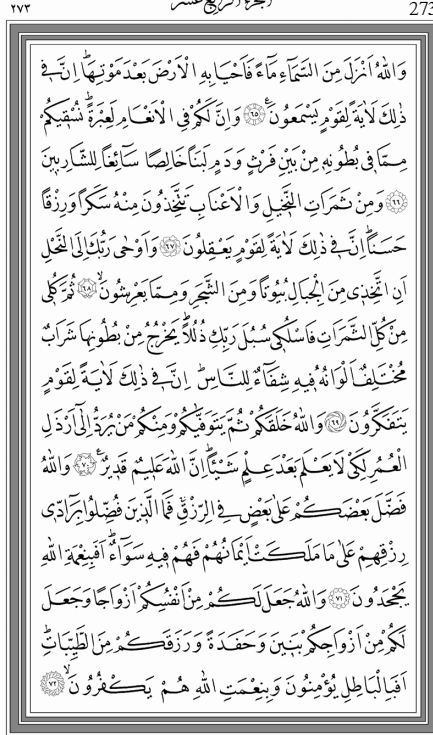 ٢٧٣ الجزء الرابع عشر 273
وَاللّٰهُ اَنْزَلَ مِنَ السَّمَٓاءِ مَٓاءً فَاَحْيَا بِهِ الْاَرْضَ بَعْدَ مَوْتِهَاۜ اِنَّ ف۪ي
ذٰلِكَ لَاٰيَةً لِقَوْمٍ يَسْمَعُونَ۟ ﴿٦٥﴾ وَاِنَّ لَكُمْ فِي الْاَنْعَامِ لَعِبْرَةًۜ نُسْق۪يكُمْ
مِمَّا ف۪ي بُطُونِه۪ مِنْ بَيْنِ فَرْثٍ وَدَمٍ لَبَنًا خَالِصًا سَٓائِغًا لِلشَّارِب۪ينَ
﴿٦٦﴾ وَمِنْ ثَمَرَاتِ النَّخ۪يلِ وَالْاَعْنَابِ تَتَّخِذُونَ مِنْهُ سَكَرًا وَرِزْقًا
حَسَنًاۜ اِنَّ ف۪ي ذٰلِكَ لَاٰيَةً لِقَوْمٍ يَعْقِلُونَ ﴿٦٧﴾ وَاَوْحٰى رَبُّكَ اِلَى النَّحْلِ
اَنِ اتَّخِذ۪ي مِنَ الْجِبَالِ بُيُوتًا وَمِنَ الشَّجَرِ وَمِمَّا يَعْرِشُونَۙ ﴿٦٨﴾ ثُمَّ كُل۪ي
مِنْ كُلِّ الثَّمَرَاتِ فَاسْلُك۪ي سُبُلَ رَبِّكِ ذُلُلًاۜ يَخْرُجُ مِنْ بُطُونِهَا شَرَابٌ
مُخْتَلِفٌ اَلْوَانُهُ ف۪يهِ شِفَٓاءٌ لِلنَّاسِۜ اِنَّ ف۪ي ذٰلِكَ لَاٰيَةً لِقَوْمٍ
يَتَفَكَّرُونَ ﴿٦٩﴾ وَاللّٰهُ خَلَقَكُمْ ثُمَّ يَتَوَفّٰيكُمْ وَمِنْكُمْ مَنْ يُرَدُّ اِلٰٓى اَرْذَلِ
الْعُمُرِ لِكَيْ لَا يَعْلَمَ بَعْدَ عِلْمٍ شَيْـًٔاۜ اِنَّ اللّٰهَ عَل۪يمٌ قَد۪يرٌ۟ ﴿٧٠﴾ وَاللّٰهُ
فَضَّلَ بَعْضَكُمْ عَلٰى بَعْضٍ فِي الرِّزْقِۚ فَمَا الَّذ۪ينَ فُضِّلُوا بِرَٓادّ۪ي
رِزْقِهِمْ عَلٰى مَا مَلَكَتْ اَيْمَانُهُمْ فَهُمْ ف۪يهِ سَوَٓاءٌۜ اَفَبِنِعْمَةِ اللّٰهِ
يَجْحَدُونَ ﴿٧١﴾ وَاللّٰهُ جَعَلَ لَكُمْ مِنْ اَنْفُسِكُمْ اَزْوَاجًا وَجَعَلَ
لَكُمْ مِنْ اَزْوَاجِكُمْ بَن۪ينَ وَحَفَدَةً وَرَزَقَكُمْ مِنَ الطَّيِّبَاتِۜ
اَفَبِالْبَاطِلِ يُؤْمِنُونَ وَبِنِعْمَتِ اللّٰهِ هُمْ يَكْفُرُونَۙ ﴿٧٢﴾